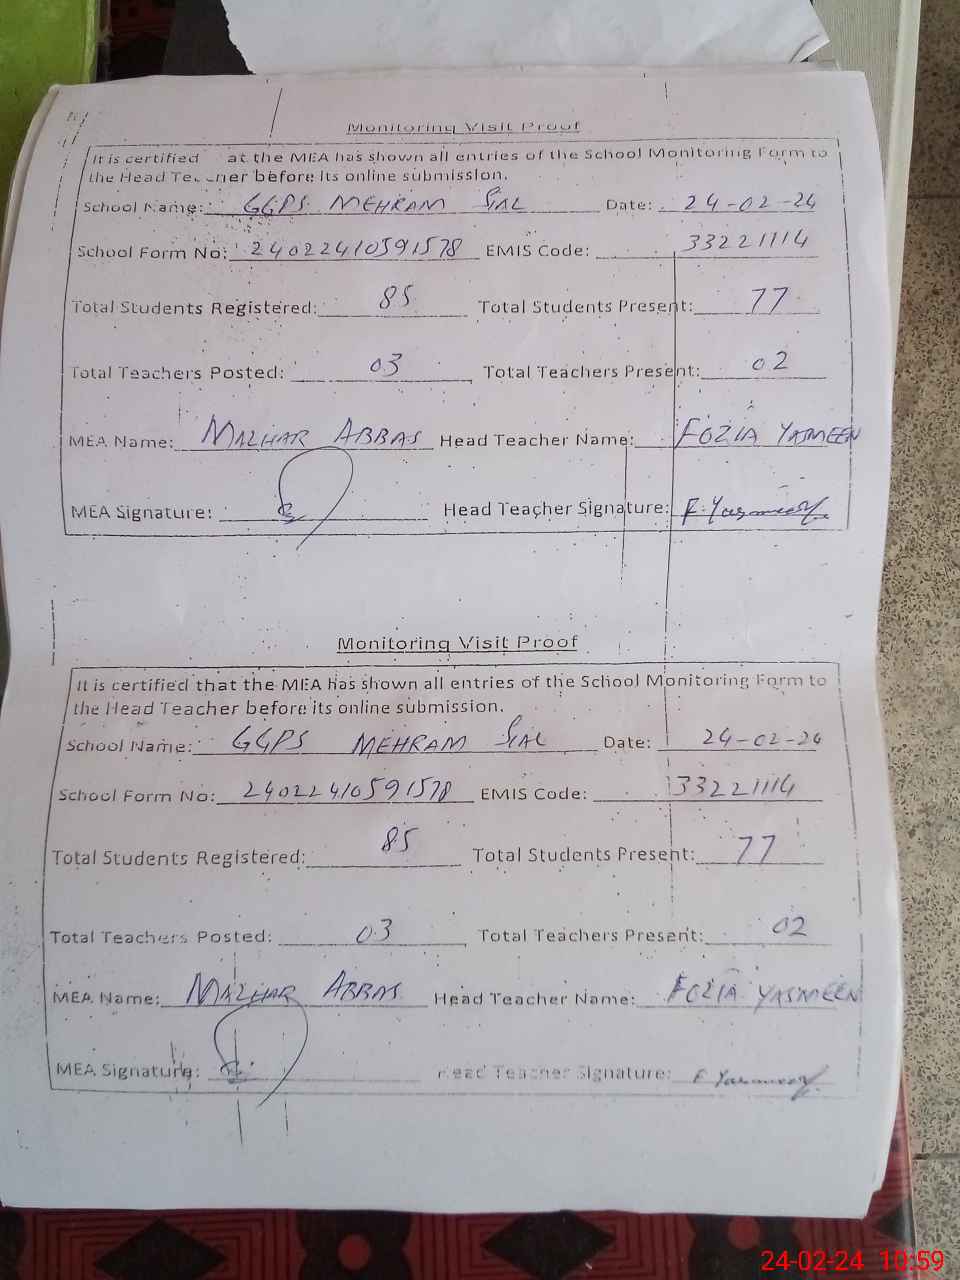 Monitoring Visit Proof
It is certified at the MEA has shown all entries of the School Monitoring Form to
the Head Teacher before its online submission.
School Name: GGPS MEHRAM SIAL Date: 24-02-24
School Form No: 24022410591578 EMIS Code: 33221114
Total Students Registered: 85 Total Students Present: 77
Total Teachers Posted: 03 Total Teachers Present: 02
MEA Name: MAZHAR ABBAS Head Teacher Name: FOZIA YASMEEN
MEA Signature: Head Teacher Signature: F. Yasmeen
Monitoring Visit Proof
It is certified that the MEA has shown all entries of the School Monitoring Form to
the Head Teacher before its online submission.
School Name: GGPS MEHRAM SIAL Date: 24-02-24
School Form No: 24022410591578 EMIS Code: 33221114
Total Students Registered: 85 Total Students Present: 77
Total Teachers Posted: 03 Total Teachers Present: 02
MEA Name: MAZHAR ABBAS Head Teacher Name: FOZIA YASMEEN
MEA Signature: Head Teacher Signature: F Yasmeen
24-02-24 10:59